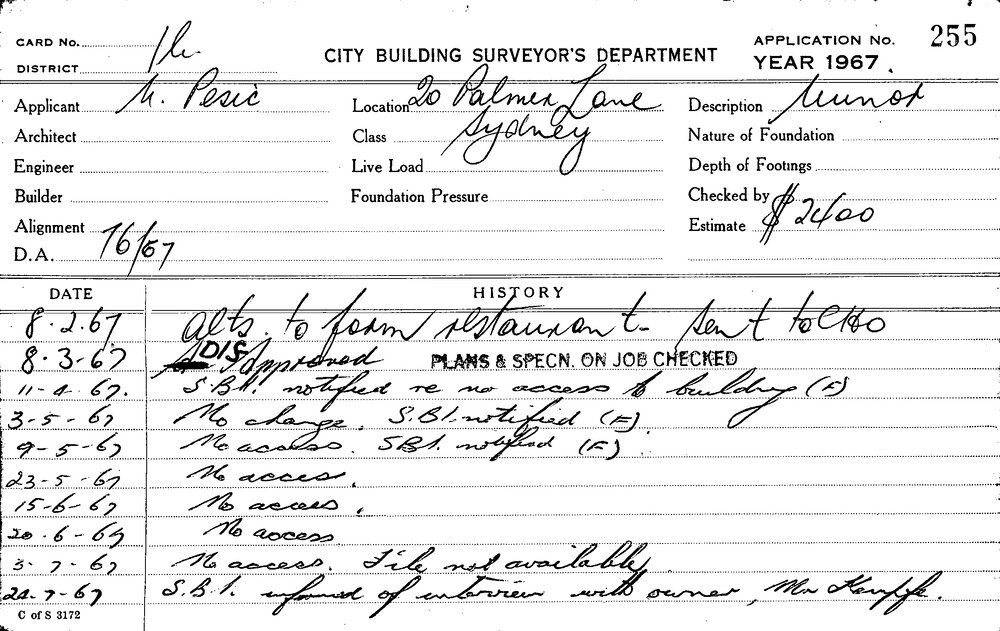 CARD No.
DISTRICT
CITY BUILDING SURVEYOR'S DEPARTMENT
APPLICATION No. 255
YEAR 1967.
Applicant M. Pesic
Location 20 Palmer Lane
Sydney
Description
Architect
Class
Nature of Foundation
Engineer
Live Load
Depth of Footings
Builder
Foundation Pressure
Checked by
Alignment
Estimate $2400
D.A. 76/67
DATE HISTORY
8.2.67 alts. to form restaurant - sent to CHO
8.3.67 DIS Approved PLANS & SPECN. ON JOB CHECKED
11-4-67. S.B.I. notified re no access to building (F)
3-5-67 No change. S.B.I. notified (F).
9-5-67 No access. SBI. notified (F).
23-5-67 No access.
15-6-67 No access.
20.6-67 No access
3-7-67 No access. File not available.
24-7-67 S.B.I. informed of interview with owner, Mr
C of S 3172